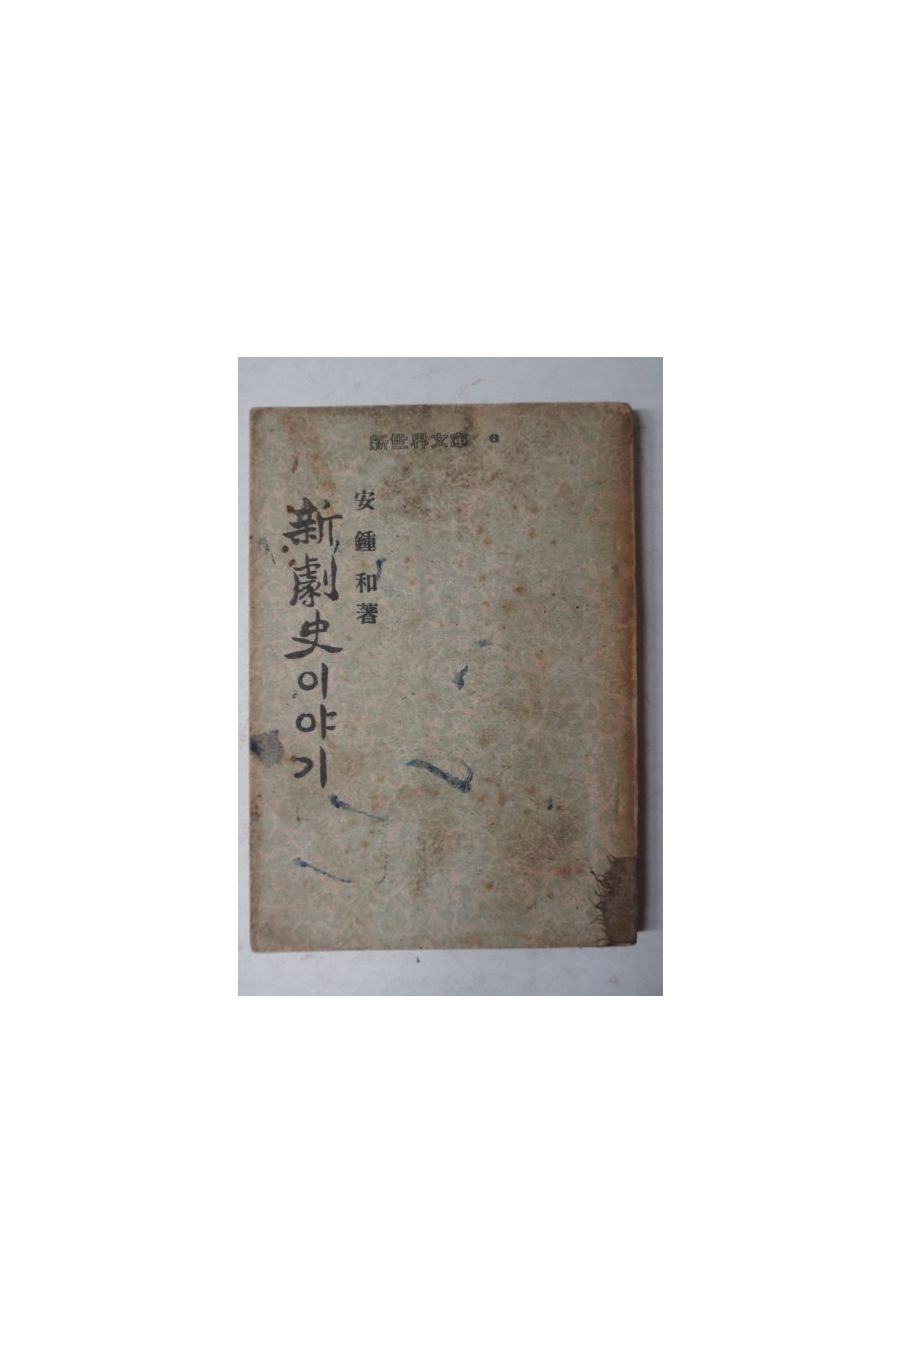 新世界文庫 6
安鍾和著
新劇史이야기